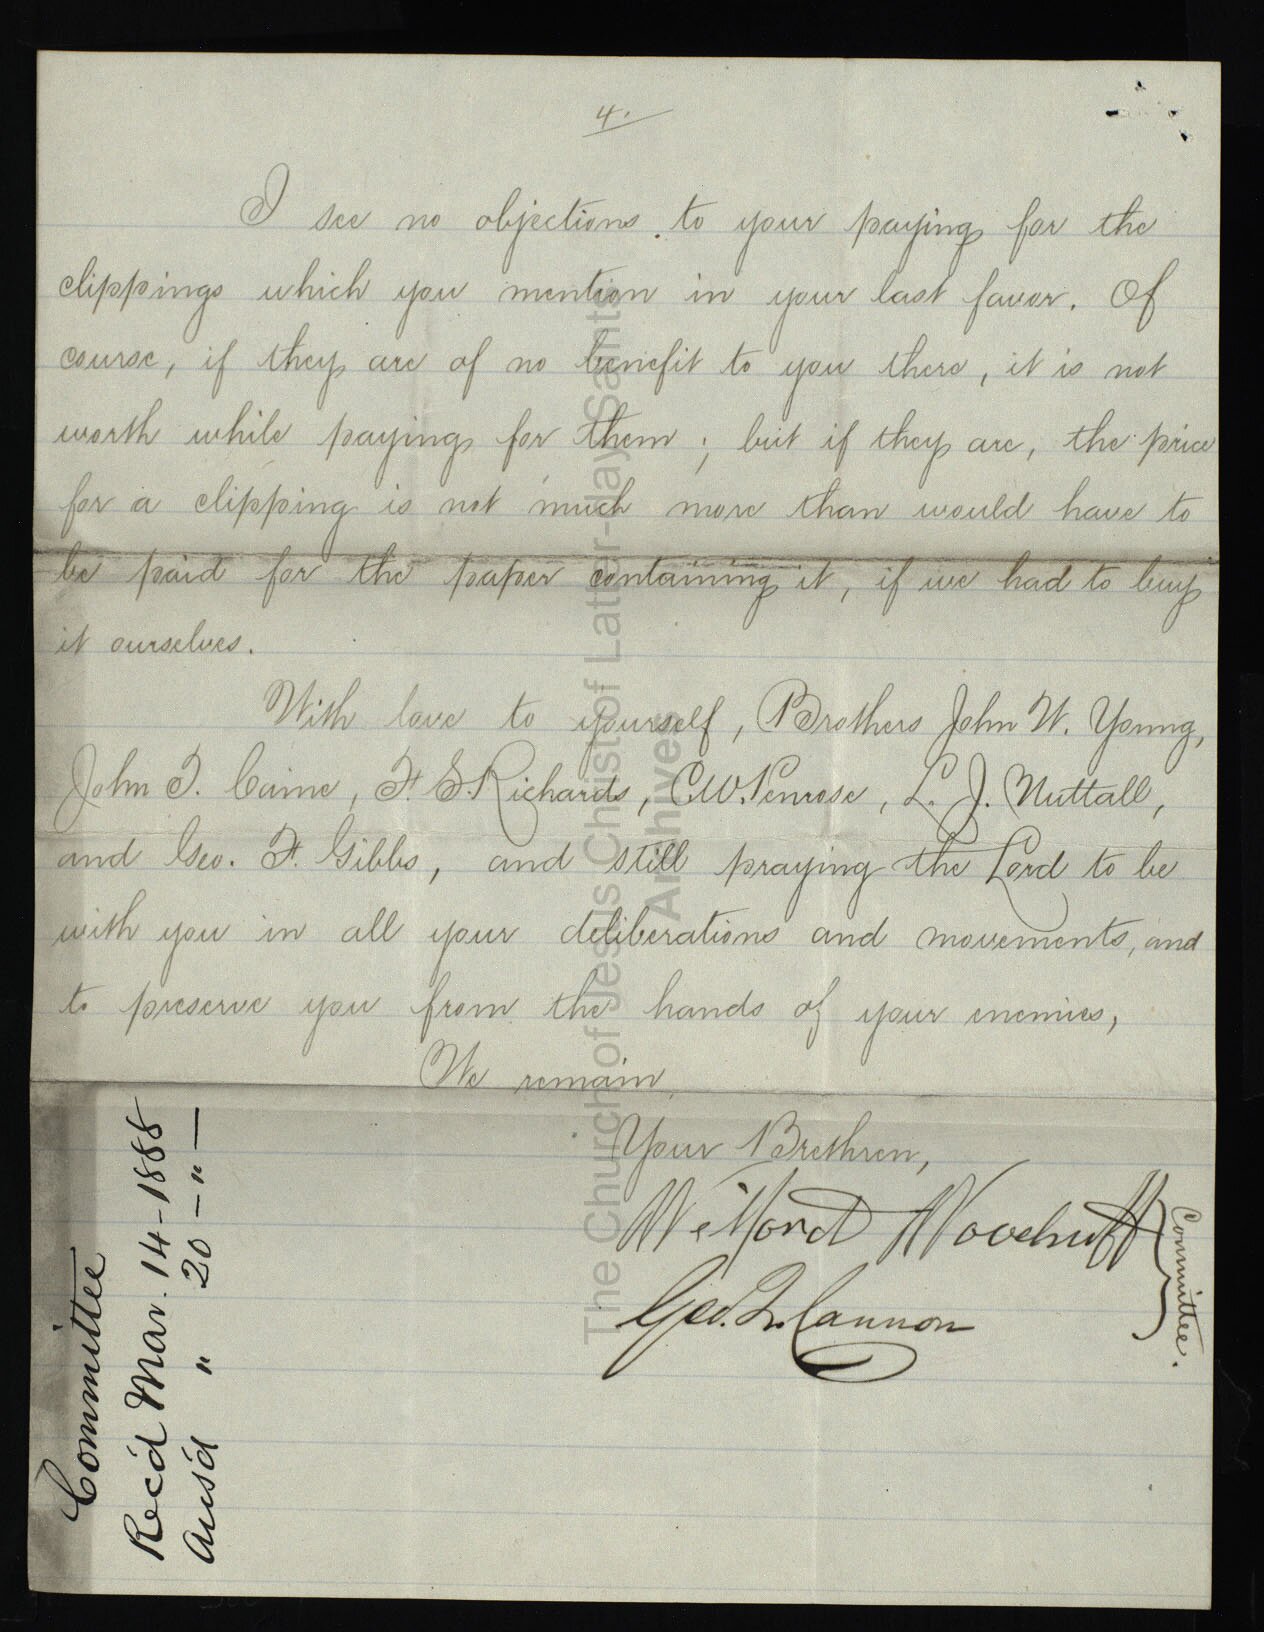 4.
I see no objections to your paying for the
clippings which you mention in your last favor. Of
course, if they are of no benefit to you there, it is not
worth while paying for them; but if they are, the price
for a clipping is not much more than would have to
be paid for the paper containing it, if we had to buy
it ourselves.
With love to yourself, Brothers John W. Young,
John T. Caine, F. S. Richards, C. W. Penrose, L. J. Nuttall,
and Geo. F. Gibbs, and still praying the Lord to be
with you in all your deliberations and movements, and
to preserve you from the hands of your enemies,
We remain,
Your Brethren,
Wilford Woodruff
Geo. Q. Cannon
Committee.
Committee
Rec'd Mar. 14-1888
Ans'd " 20 - " -
The Church of Jesus Christ of Latter-day Saints
Archives